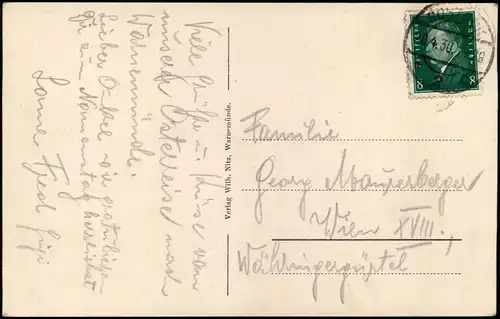 Viele Grüße u. Küsse von
unserer Osterreise nach
Warnemünde.
Lieber Onkel wir gratulieren
Dir zum Namenstag herzlichst
Fred Gigi
Verlag Wilh. Nitz, Warnemünde.
Familie
Georg Mauserberger
Wien XVIII,
Währingergürtel
8